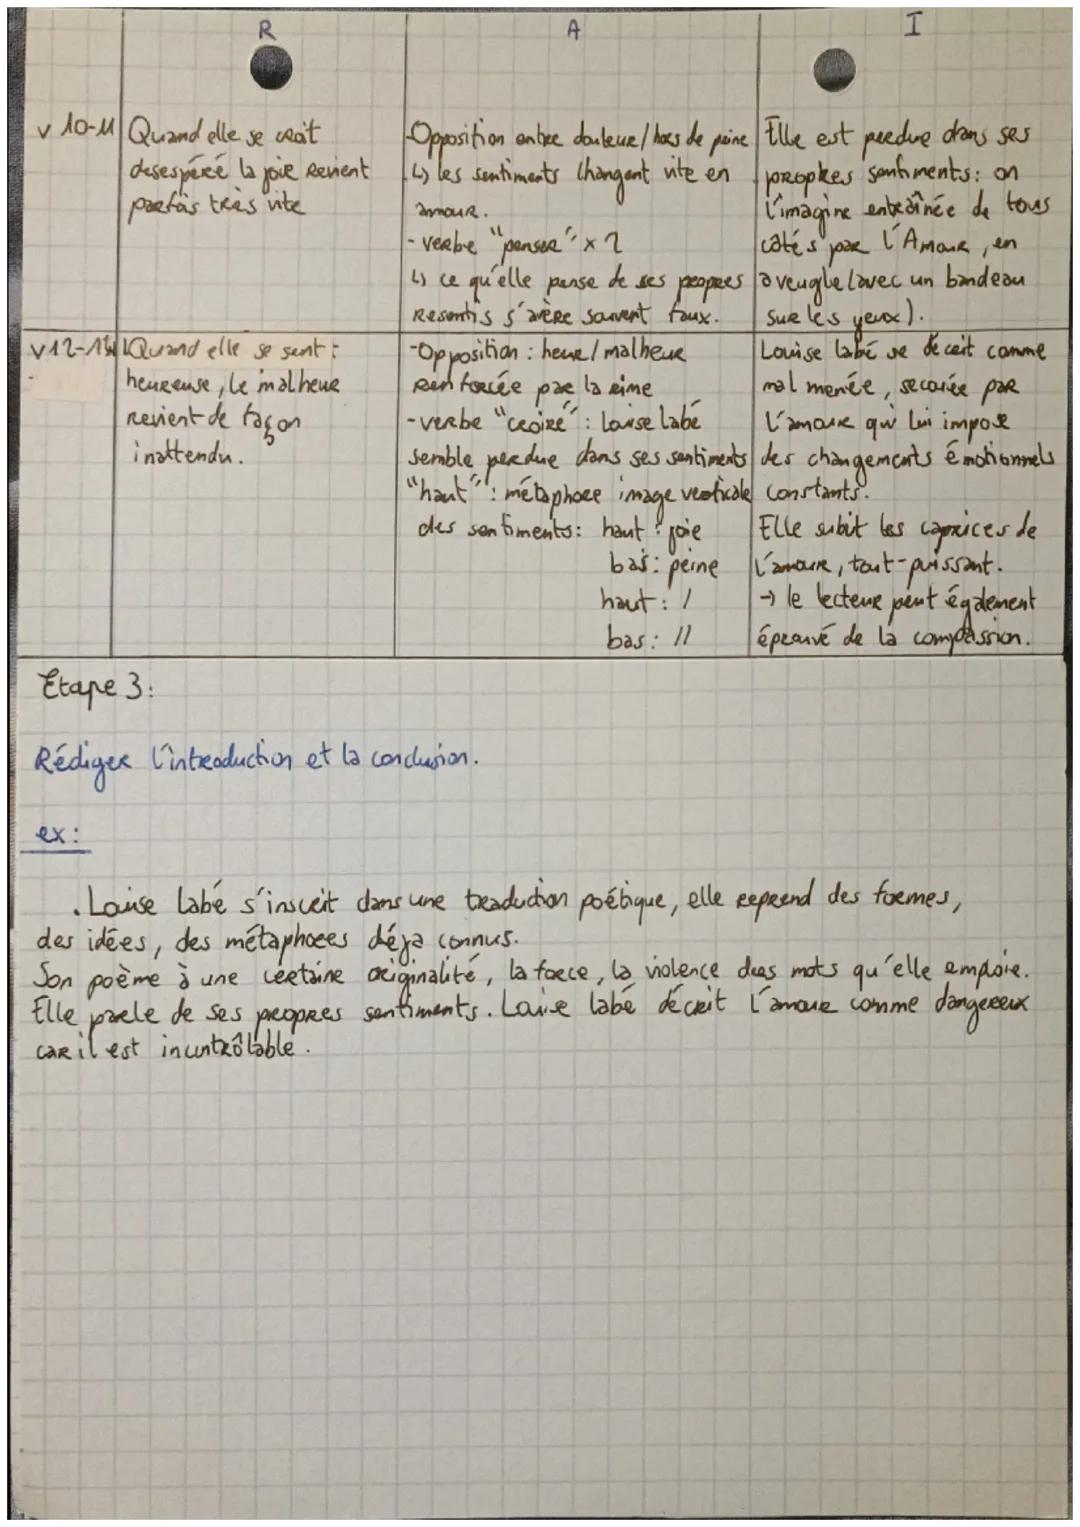 R A I
v 10-11
Quand elle se croit
desespéré la joie revient
parfois très vite
-Opposition entre douleur / hors de peine
↳ les sentiments changent vite en
amour.
- verbe "penser" x 2
↳ ce qu'elle pense de ses propres
resentis s'avère souvent faux.
Elle est perdue dans ses
propres sentiments: on
l'imagine entraînée de tous
côtés par l'Amour, en
aveugle (avec un bandeau
sur les yeux).
v12-14
Quand elle se sent :
heureuse, le malheur
revient de façon
inattendu.
-Opposition : heur / malheur
renforcée par la rime
-verbe "croire" : Louise labé
semble perdue dans ses sentiments
"haut" : métaphore image verticale
des sentiments: haut : joie
bas: peine
haut : /
bas: //
Louise labé se décrit comme
mal menée, secouée par
l'amour qui lui impose
des changements émotionnels
constants.
Elle subit les caprices de
l'amour, tout-puissant.
→ le lecteur peut également
éprouvé de la compassion.
Etape 3:
Rédiger l'introduction et la conclusion.
ex:
. Louise labé s'inscrit dans une traduction poétique, elle reprend des formes,
des idées, des métaphores déja connus.
Son poème à une certaine originalité, la force, la violence des mots qu'elle emploie.
Elle parle de ses propres sentiments. Louise labé décrit l'amour comme dangereux
car il est incontrôlable.